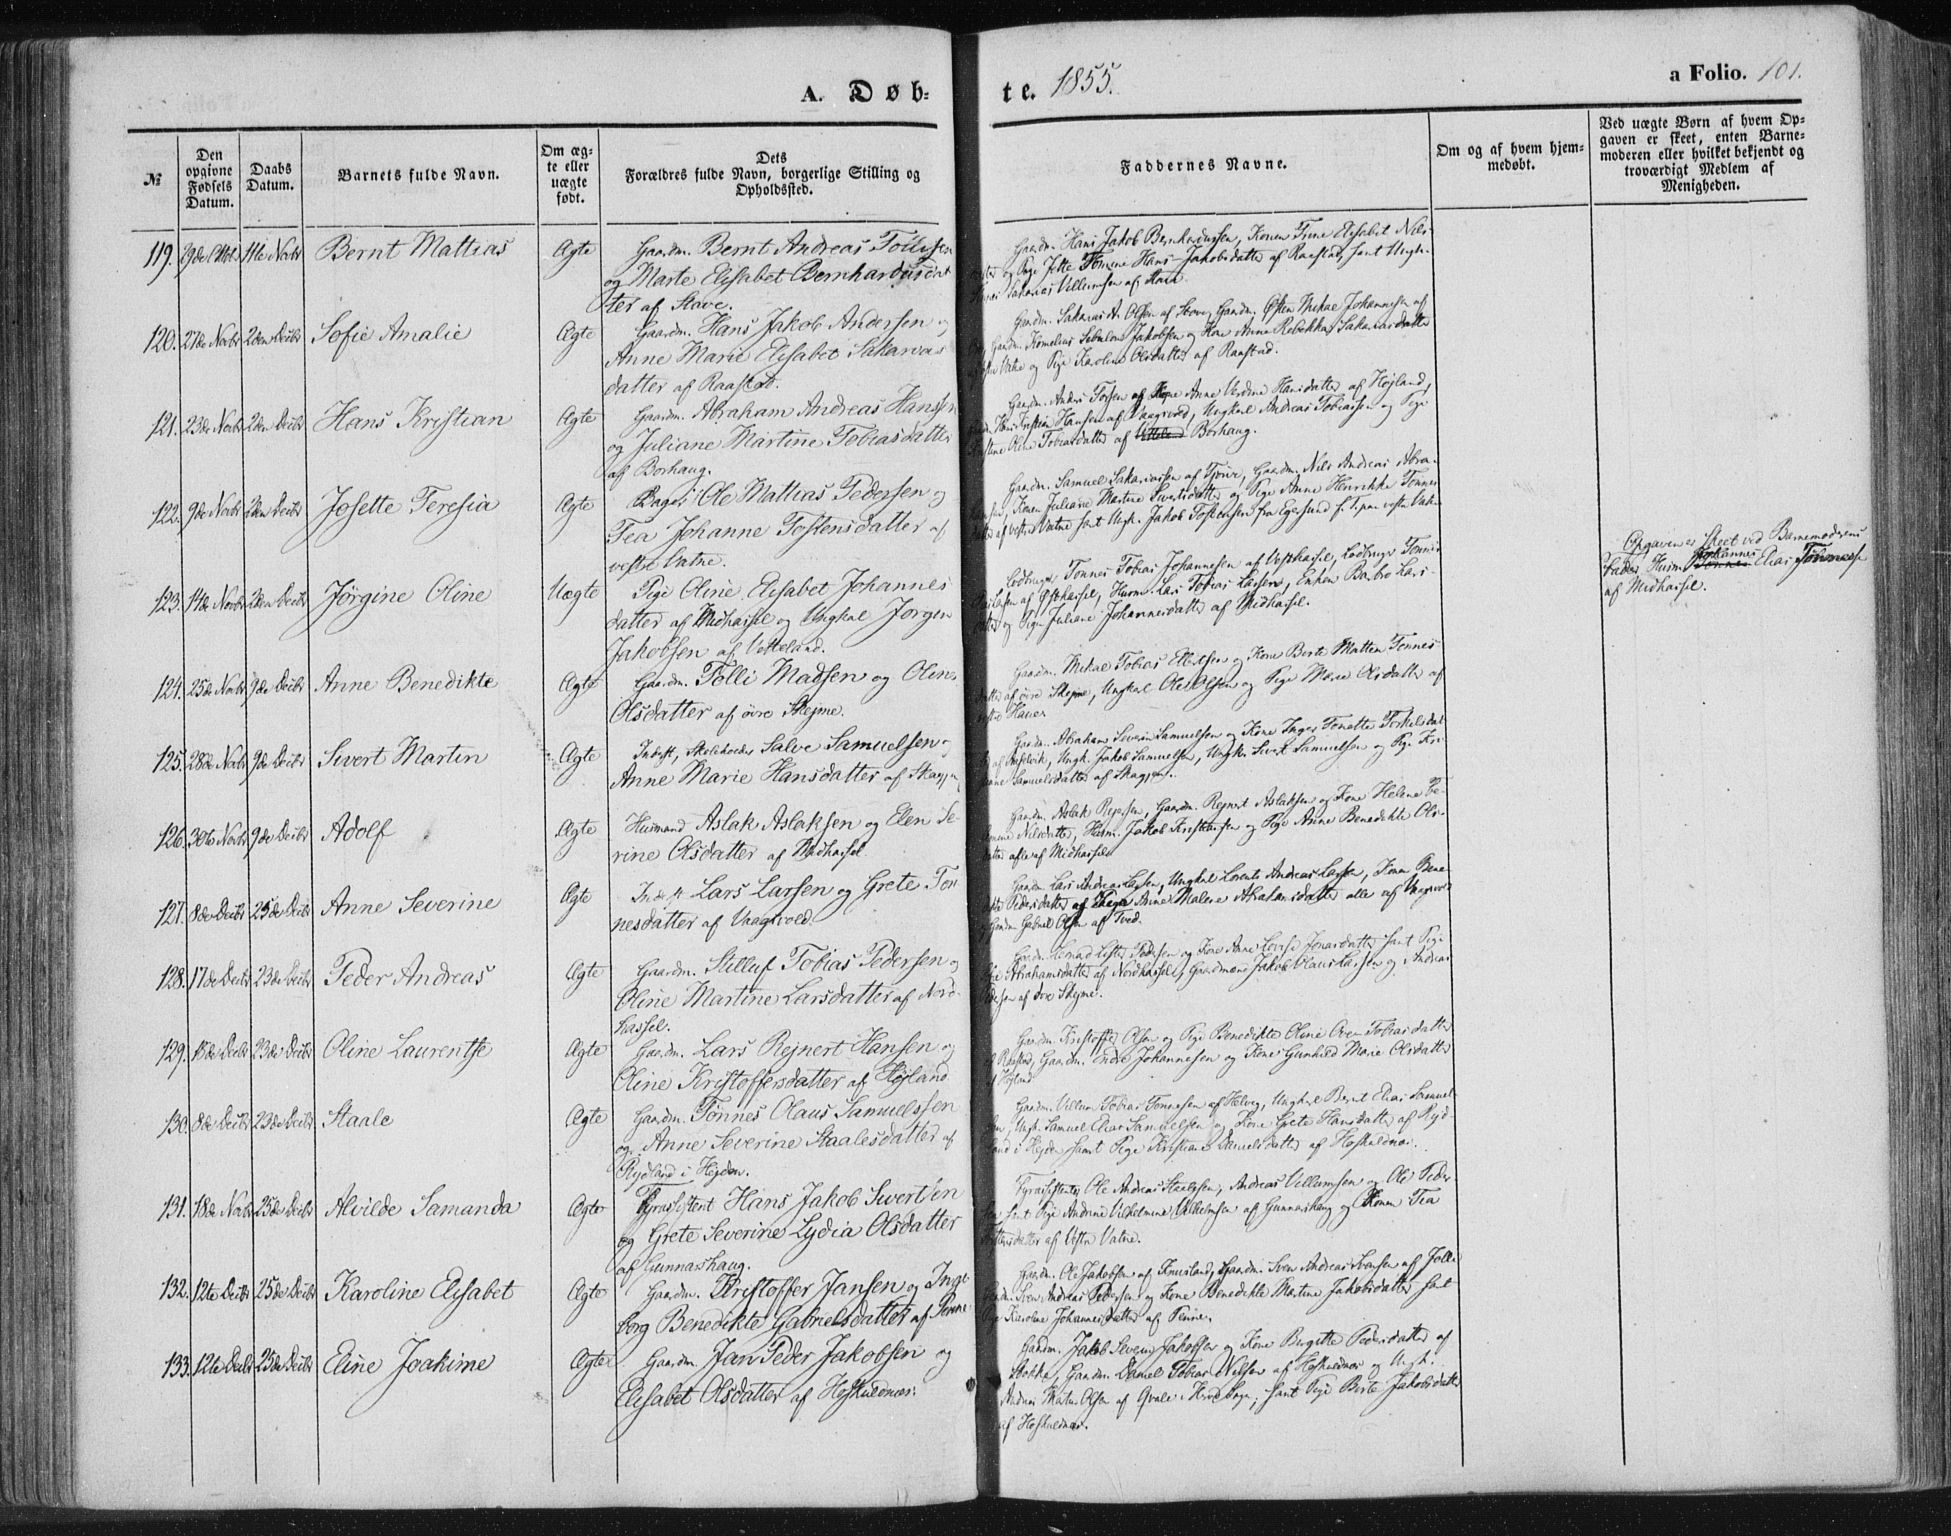 A. Døb-
te. 1855.
a Folio. 101.
№
Den opgivne Fødsels Datum.
Daabs Datum.
Barnets fulde Navn.
Om æg-
te eller
uægte
født.
Dets
Forældres fulde Navn, borgerlige Stilling og
Opholdssted.
Faddernes Navne.
Om og af hvem hjem-
medøbt.
Ved uægte Børn af hvem Op-
gaven er skeet, enten Barne-
moderen eller hvilket bekjendt og
troværdigt Medlem af
Menigheden.
119. 11te Novbr Bernt Mattias Ægte Gaardm. Bernt Andreas
og Marte Elisabet Bernhardusdat
ter af Stave.
Gaardm. Hans Jakob Bernhardussen, Konen Trine Elisabet Nils-
og Pige Jette Hans Jakobsdatter af Raastad, samt Ungk.
Sakarias Villumsen af
120. 27de Novbr 2den Decbr Sofie Amalie Ægte Gaardm. Hans Jakob Andersen og
Anne Marie Elisabet Sakarias
datter af Raastad.
Gaardm. Sakarias A. Olsen af Stave, Gaardm. Østen Mikal Johannesen af
Gaardm. Kornelius Sebulon Jakobsen og Kone Anne Rebekka Sakariasdatter
og Pige Karoline Olsdatter af Raastad.
121. 23de Novbr 2den Decbr Hans Kristian Ægte Gaardm. Abraham Andreas Hansen
og Juliane Martine Tobiasdatter
af Borhaug.
Gaardm. Anders Torsen og Kone Anne Verdine Hansdatter af Højland,
Hans Kristian Hansen af Vaagsvold, Ungkal Andreas Tobiassen og Pige
Oline Tobiasdatter af Borhaug.
122. 9de Novbr 2den Decbr Josette Teresia Ægte Bager Ole Mattias Pedersen og
Tea Johanne Tostensdatter af
vestre Vatne.
Gaardm. Samuel Sakariassen af Tjørve, Gaardm. Nils Andreas Abra-
Konen Juliane Martine Sivertsdatter og Pige Anne Henrikke Tønnes
af vestre Vatne samt Ungk. Jakob Tostensen fra Egersund
123. 14de Novbr 2den Decbr Jørgine Oline Uægte Pige Oline Elisabet Johannes
datter af Midhassel og Ungkal Jørgen
Jakobsen af Vetteland.
Lodbruger Tønnes Tobias Johannesen af Østhassel, Lodbruger Tønnes
af Østhassel, Husm. Lars Tobias Larsen, Enken Barbro Lars-
og Pige Juliane Johannesdatter af Midhassel.
Opgaven er skeet ved Barnemoderens
Fader Husm. Johannes Elias
af Midhassel.
124. 25de Novbr 9de Decbr Anne Benedikte Ægte Gaardm. Tolli Madsen og Oline
Olsdatter af øvre Skejme.
Gaardm. Mikal Tobias Ellertsen og Kone Berte Matten Tønnes-
af øvre Skejme, Ungkal Ole Olsen og Pige Marie Olsdatter af
125. 28de Novbr 9de Decbr Sivert Martin Ægte Inderst, Skoleholder Salve Samuelsen og
Anne Marie Hansdatter af
Gaardm. Abraham Severin Samuelsen og Kone Inger Tonette Torkelsdat
Ungk. Jakob Samuelsen, Ungk. Sivert Samuelsen og Pige
Samuelsdatter af
126. 30te Novbr 9de Decbr Adolf Ægte Husmand Aslak Aslaksen og Elen Se-
rine Olsdatter af Midhassel
Gaardm. Aslak Rejersen, Gaardm. Rejnert Aslaksen og Kone Helene
Nilsdatter, Husm. Jakob Kristensen og Pige Anne Benedikte Ols-
datter alle af Midhassel.
127. 8de Decbr 25de Decbr Anne Severine Ægte Inderst Lars Larsen og Grete Tøn
nesdatter af Vaagsvold.
Gaardm. Lars Andreas Larsen, Ungkal Lorents Andreas Larsen, Kone
Pedersdatter Anne Malene Abrahamsdatter alle af Vaagsvold
Gaardm. Gabriel Olsen af Tved.
128. 17de Decbr 23de Decbr Peder Andreas Ægte Gaardm. Stilluf Tobias Pedersen og
Oline Martine Larsdatter af Nord-
hassel.
Gaardm. Pedersen og Kone Anne Lovise Jonasdatter samt Pige
Abrahamsdatter af Nordhassel, Gaardmænd Jakob Olaus Larsen og Andreas
af øvre Skejme.
129. 23de Decbr Oline Laurentse Ægte Gaardm. Lars Rejnert Hansen og
Oline Kristoffersdatter af Højland
Gaardm. Kristoffer Olsen og Pige Benedikte Oline Tobiasdatter
Gaardm. Endre Johannesen og Kone Gunhild Marie Olsdatter
af Højland
130. 8de Decbr 23de Decbr Staale Ægte Gaardm. Tønnes Olaus Samuelssen
og Anne Severine Staalesdatter af
Rydland i Hejden.
Gaardm. Villum Tobias Tønnesen af Helvig, Ungkal Bernt Elias Samuel-
sen, Ungk. Samuel Elias Samuelsen og Kone Grete Hansdatter af Ryd
land i Hejden samt Pige Kristiane Samuelsdatter af
131. 18de Novbr 25de Decbr Alvilde Samanda Ægte Fyrassistent Hans Jakob Sivertsen
og Grete Severine Lydia Olsdatter
af Gunnarshaug.
Fyrassistenter Ole Andreas Staalesen, Andreas Villumsen og Ole Peder-
sen samt Pige Andrine Vilhelmine Vilhelmsen af Gunnarshaug og Konen Tea
Tostensdatter af Vestre Vatne.
132. 12te Decbr 25de Decbr Karoline Elisabet Ægte Gaardm. Kristoffer Jansen og Inge
borg Benedikte Gabrielsdatter af Penne
Gaardm. Ole Jakobsen af Knivsland, Gaardm. Sven Andreas Ivarsen af
Sven Andreas Pedersen og Kone Benedikte Martine Jakobsdatter samt
Pige Karoline Johannesdatter af Penne.
133. 12te Decbr 25de Decbr Eline Joakime Ægte Gaardm. Jan Peder Jakobsen og
Elisabet Olsdatter af
Gaardm. Jakob Severin Jakobsen og Kone Birgitte Pedersdatter af
Gaardm. Daniel Tobias Nilsen af og Ungk.
Andreas Olsen af samt Pige Berte Jakobsdatter
af